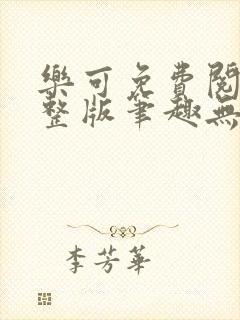 樂可免費閱
整版筆趣無
李芳華